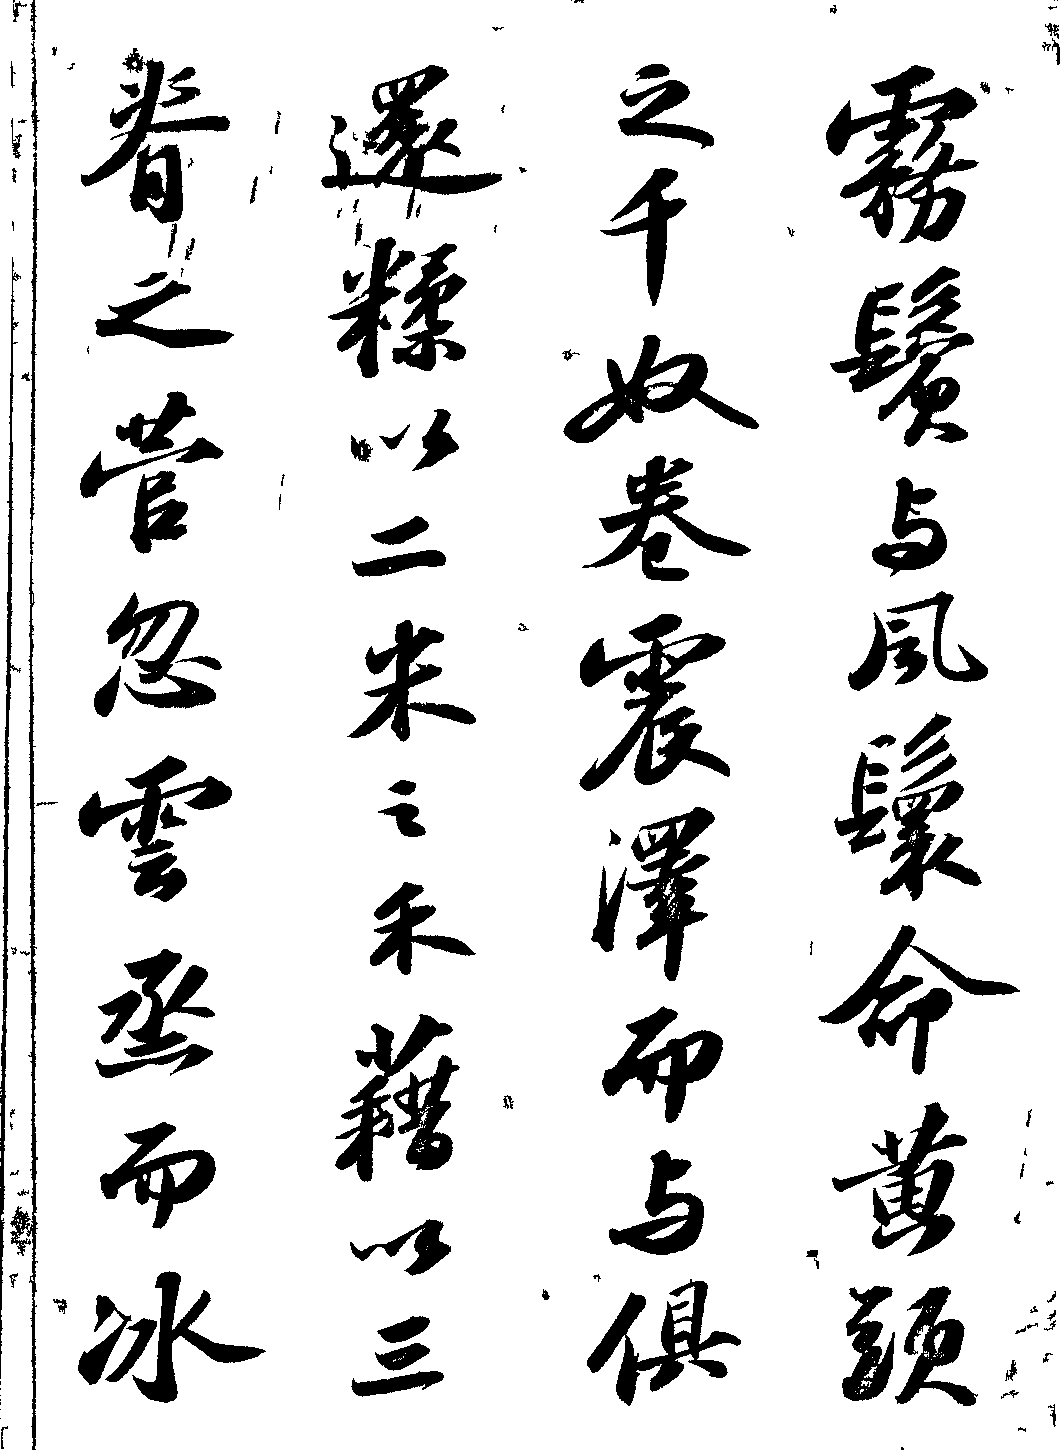 霧鬢与風鬟命黃頭
之千奴卷震澤而与俱
還糅以二米之禾藉以三
脊之菅忽雲烝而冰